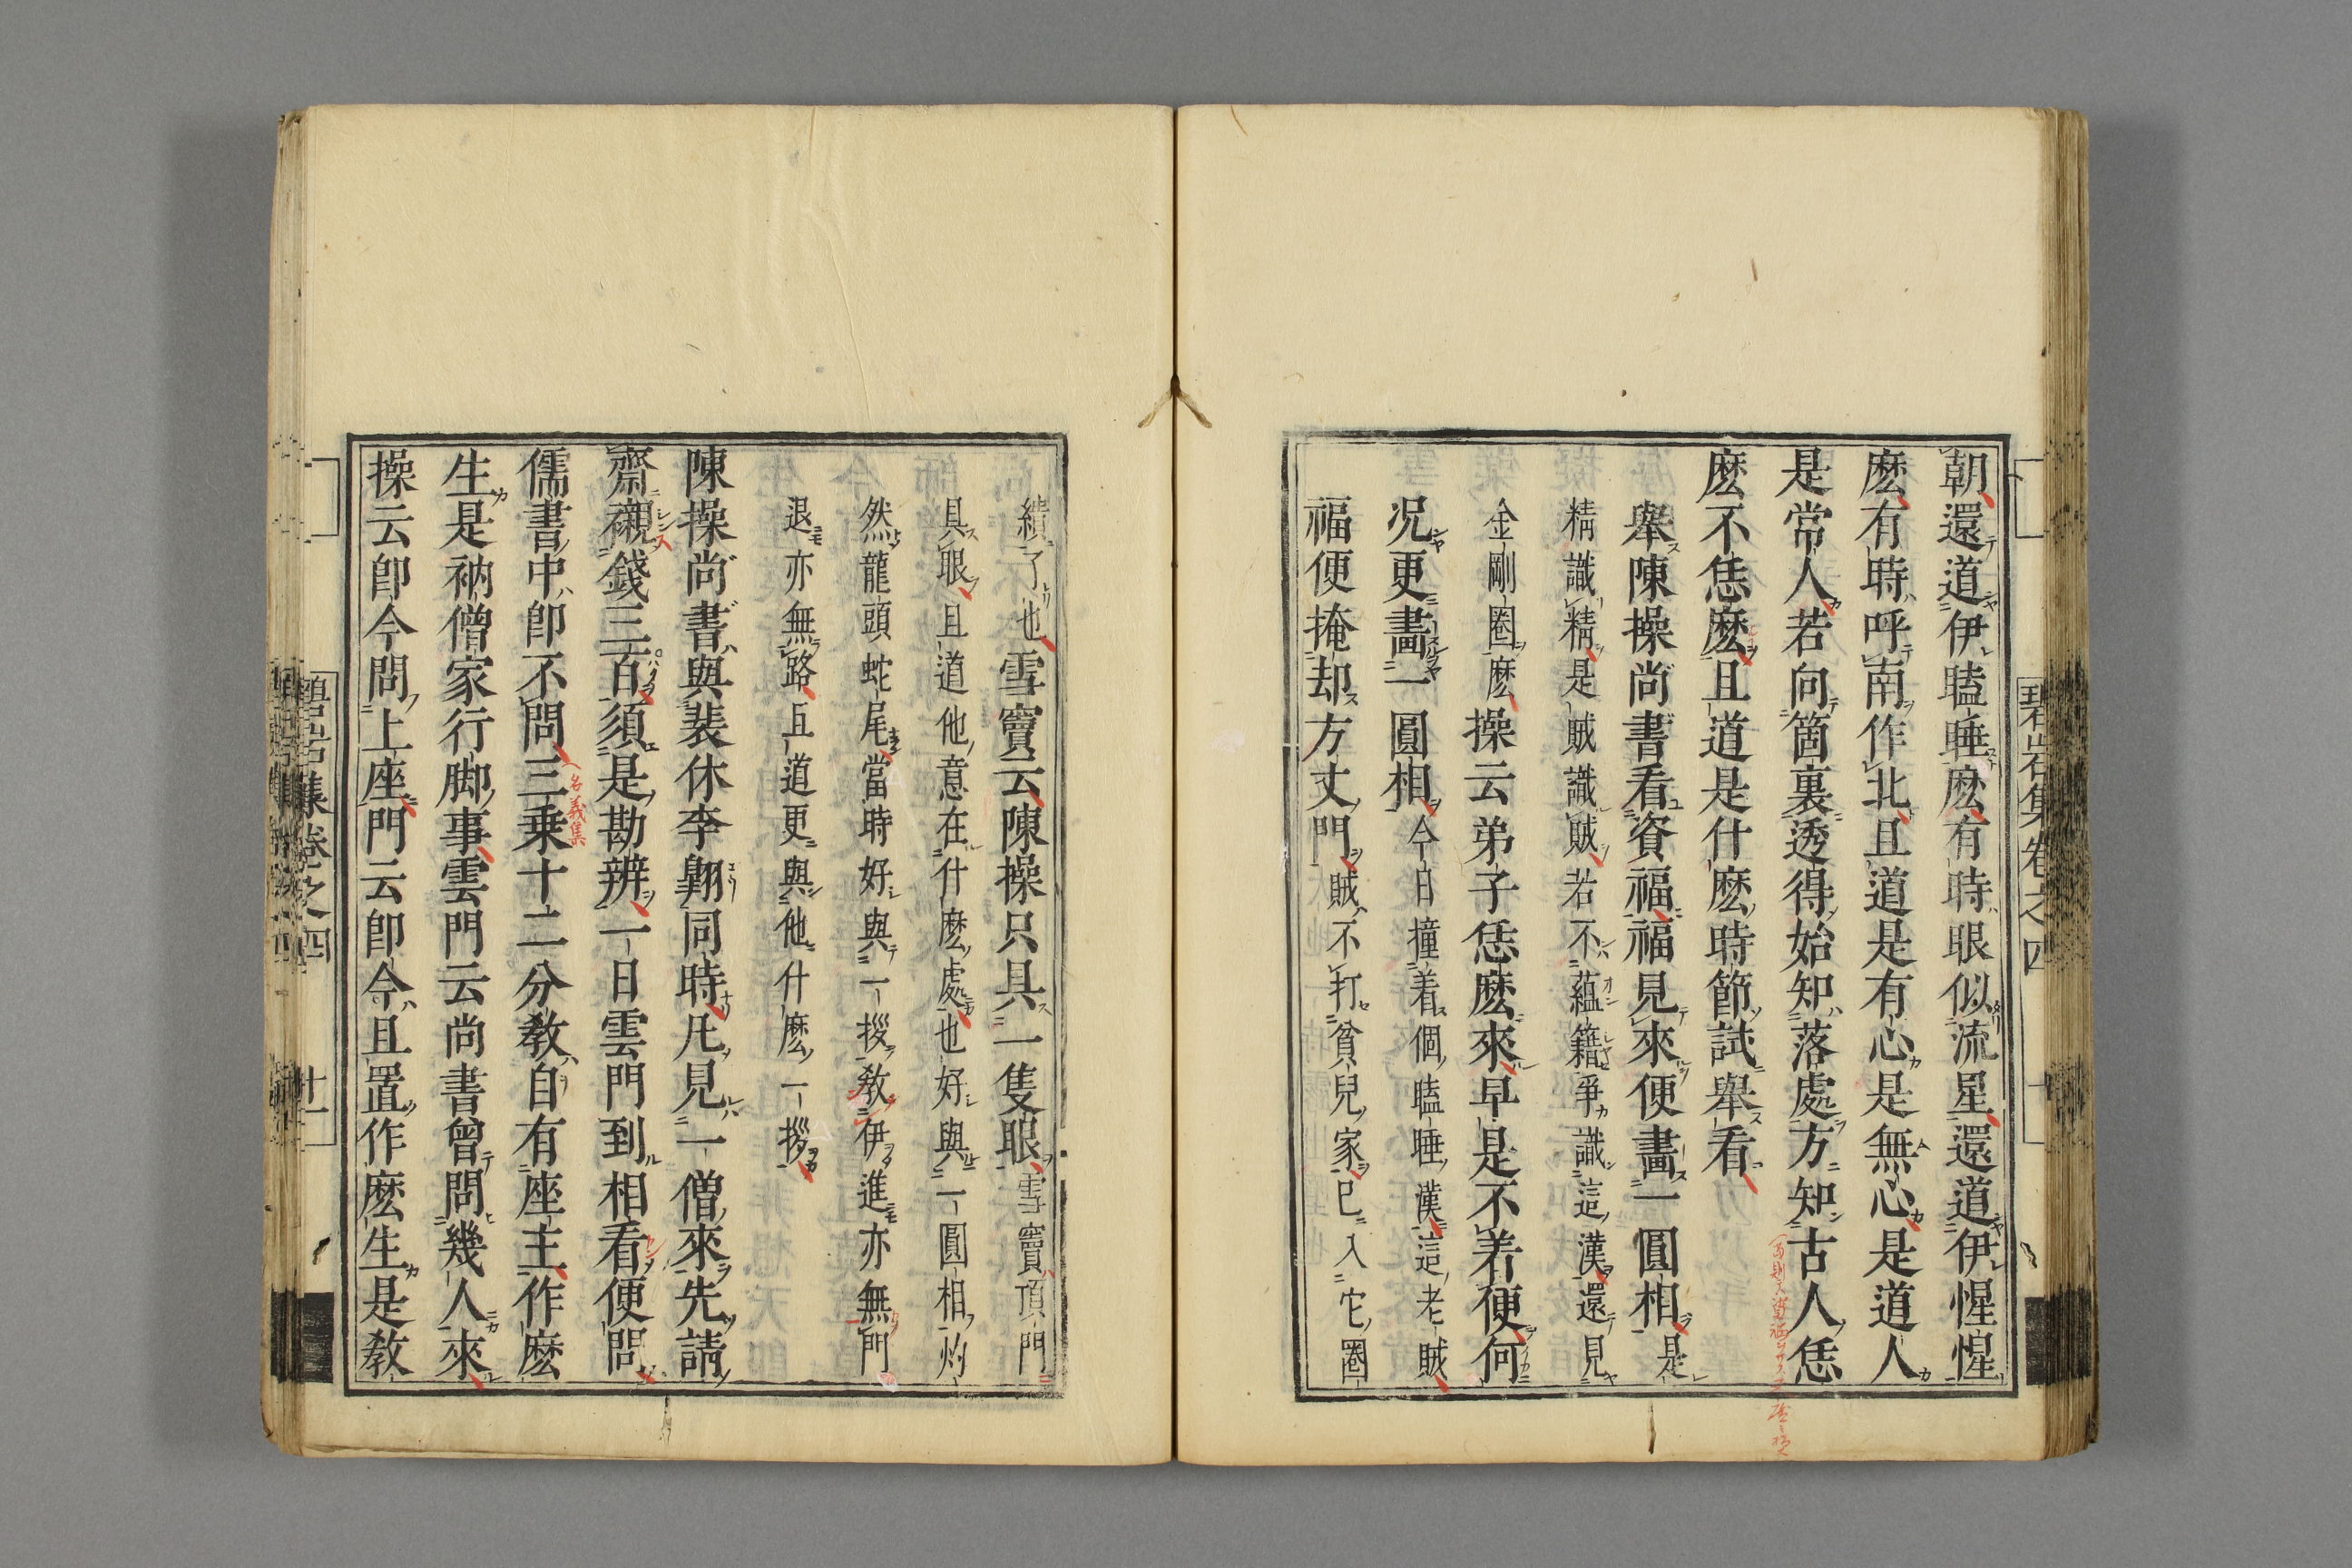 朝還道伊瞌睡麽有時眼似流星還道伊惺惺
麽有時呼南作北且道是有心是無心是道人
是常人若向箇裏透得始知落處方知古人恁
麽不恁麽且道是什麽時節試舉看
舉陳操尚書看資福福見來便畫一圓相是
精識精是賊識賊若不蘊籍爭識這漢還見
金剛圈麽操云弟子恁麽來早是不着便何
况更畫一圓相今日撞着個瞌睡漢這老賊
福便掩却方丈門賊不打貧兒家已入它圈
繢了也雪竇云陳操只具一隻眼雪竇頂門
具眼且道他意在什麽處也好與一圓相灼
然龍頭蛇尾當時好與一拶教伊進亦無門
退亦無路且道更與他什麽一拶
陳操尚書與裴休李翺同時凡見一僧來先請
齋襯錢三百須是勘辨一日雲門到相看便問
儒書中即不問三乗十二分教自有座主作麽
生是衲僧家行脚事雲門云尚書曾問幾人來
操云即今問上座門云即今且置作麽生是教
碧岩集卷之四
十一
名義集